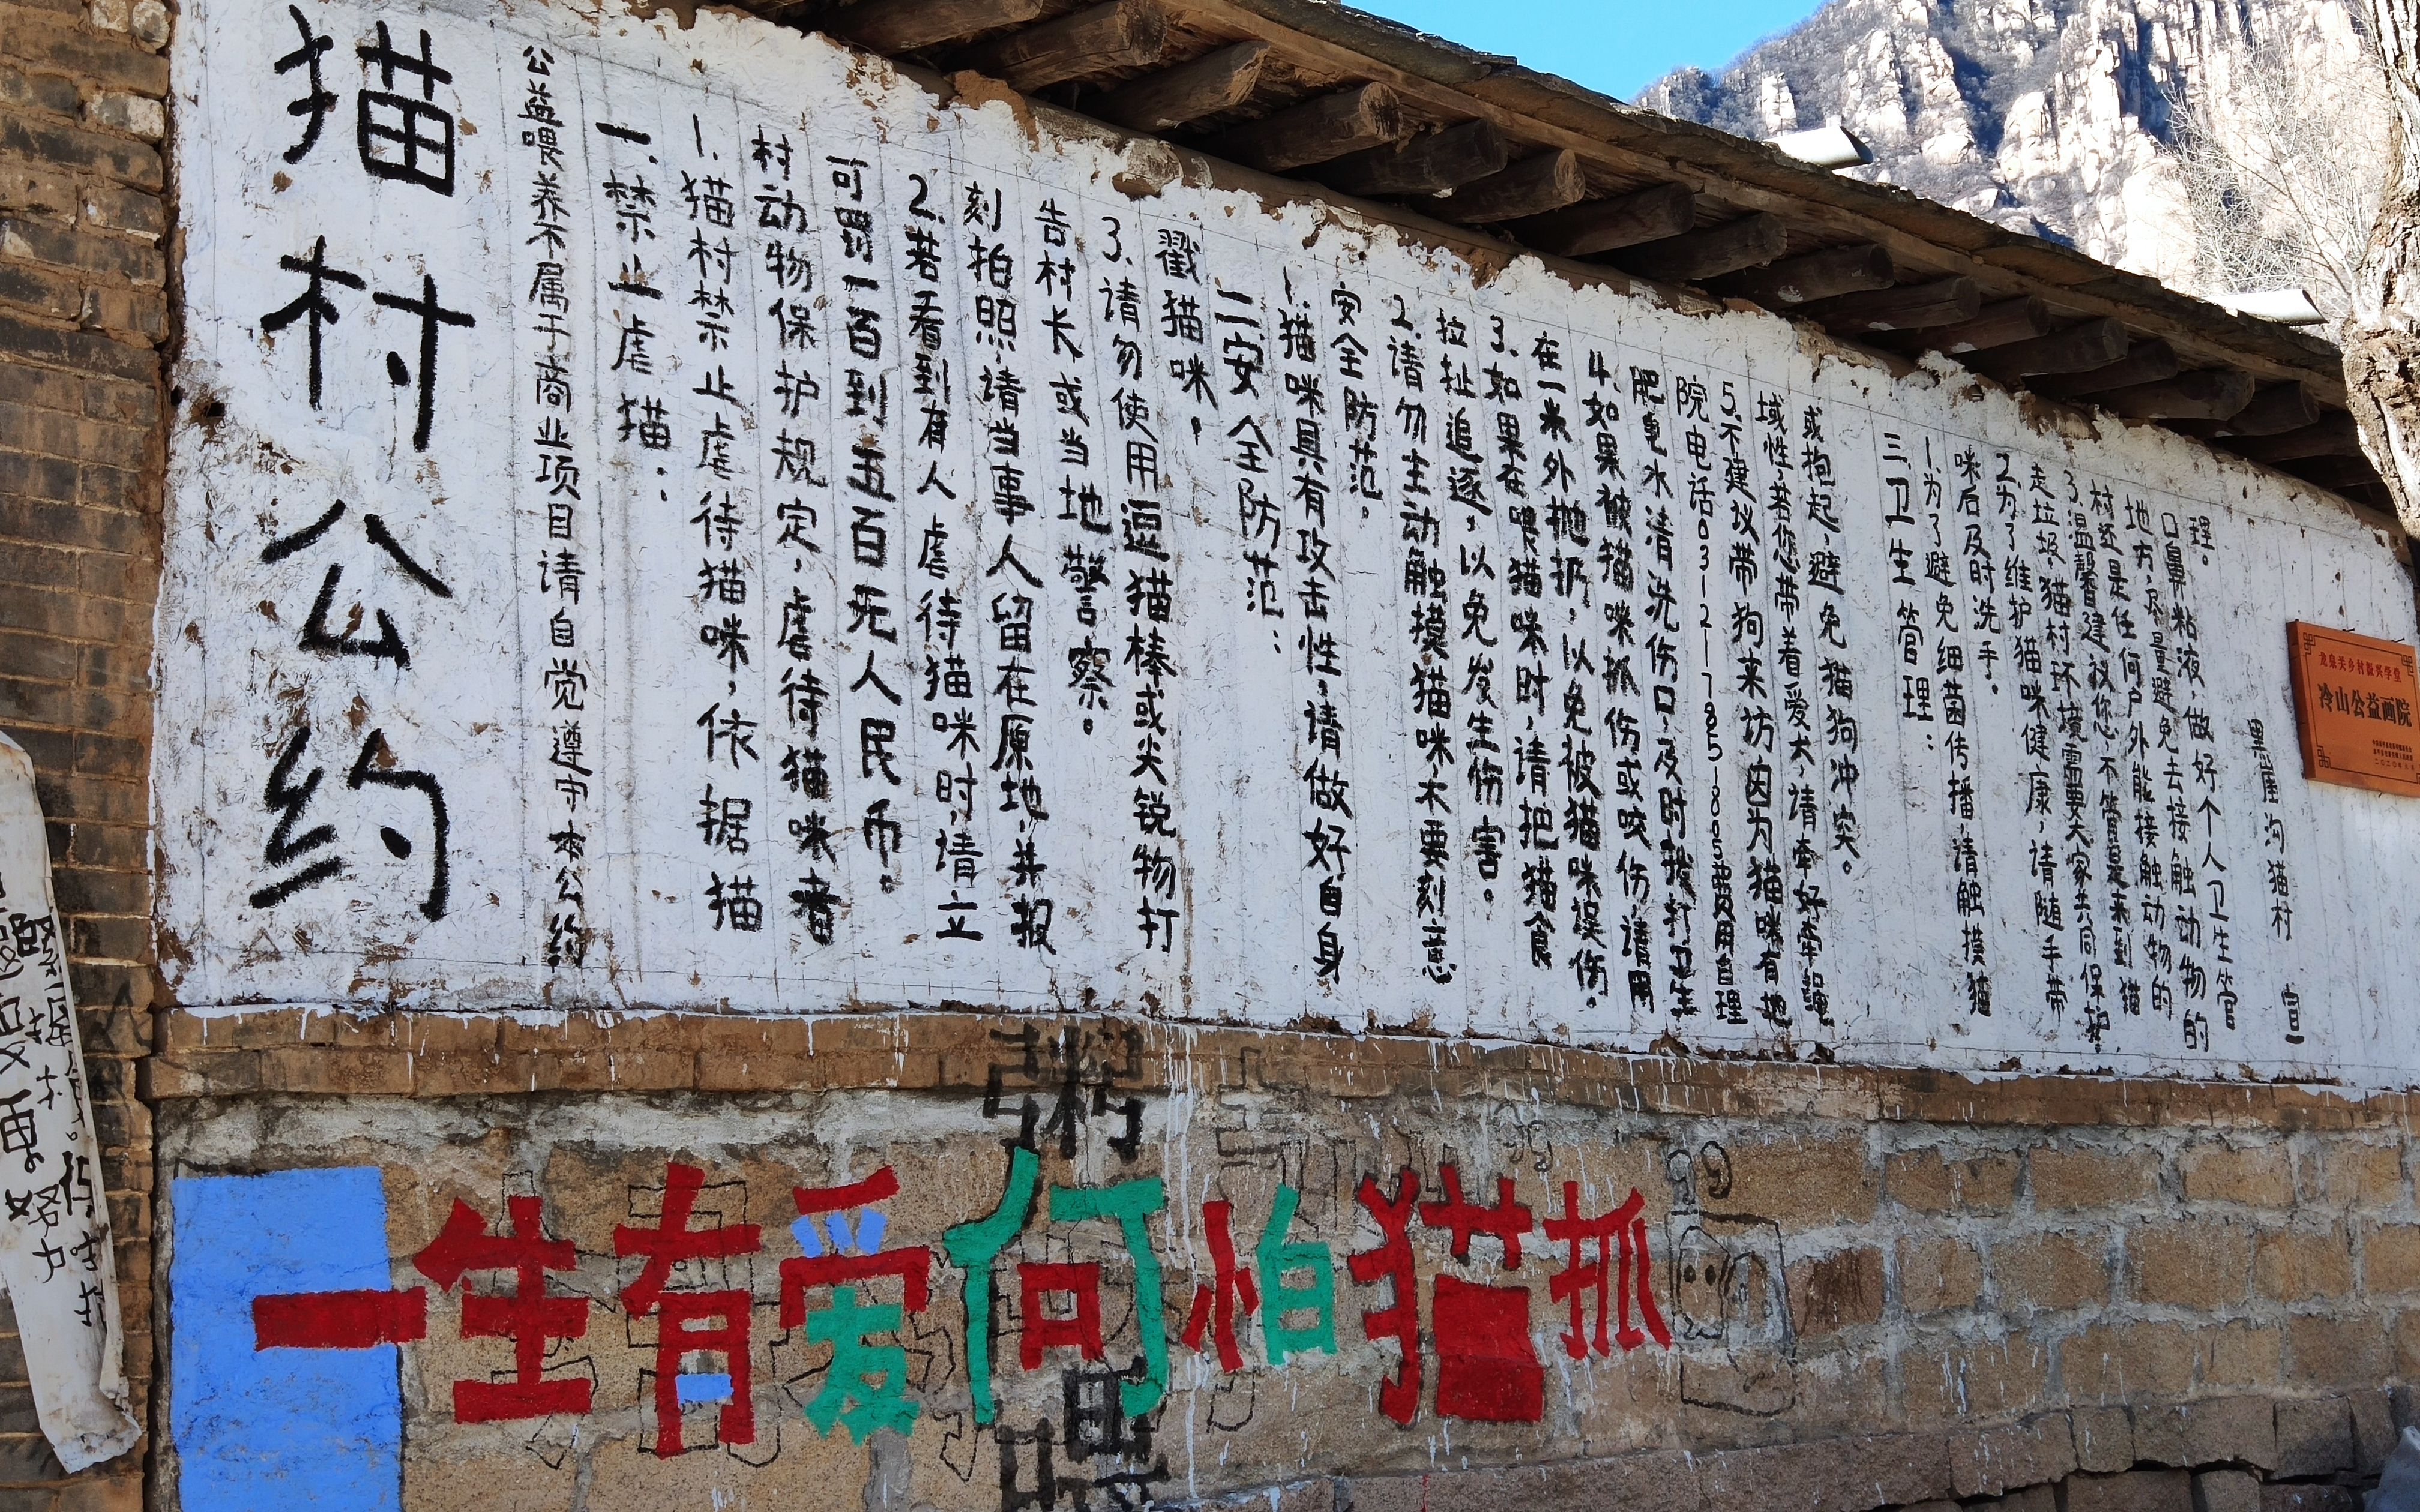 猫村公约
公益喂养不属于商业项目请自觉遵守本公约
一.禁止虐猫：
1.猫村禁止虐待猫咪，依据猫
村动物保护规定，虐待猫咪者
可罚一百到五百元人民币。
2.若看到有人虐待猫咪时，请立
刻拍照，请当事人留在原地，并报
告村长或当地警察。
3.请勿使用逗猫棒或尖锐物打
戳猫咪。
二安全防范：
1.猫咪具有攻击性，请做好自身
安全防范。
2.请勿主动触摸猫咪不要刻意
拉扯追逐，以免发生伤害。
3.如果在喂猫咪时，请把猫食
在一米外抛扔，以免被猫咪误伤。
4.如果被猫咪抓伤或咬伤，请用
肥皂水清洗伤口，及时拨打卫生
院电话0312-7885-865费用自理
5.不建议带狗来访因为猫咪有地
域性，若您带着爱犬，请牵好牵绳
或抱起，避免猫狗冲突。
三.卫生管理：
1.为了避免细菌传播，请触摸猫
咪后及时洗手。
2.为了维护猫咪健康，请随手带
走垃圾，猫村环境需要大家共同保护。
3.温馨建议您，不管是来到猫
村还是任何户外能接触动物的
地方，尽量避免去接触动物的
口鼻粘液，做好个人卫生管
理。
黑崖沟猫村 宣
龙泉关乡村振兴学堂
冷山公益画院
一生有爱何怕猫抓